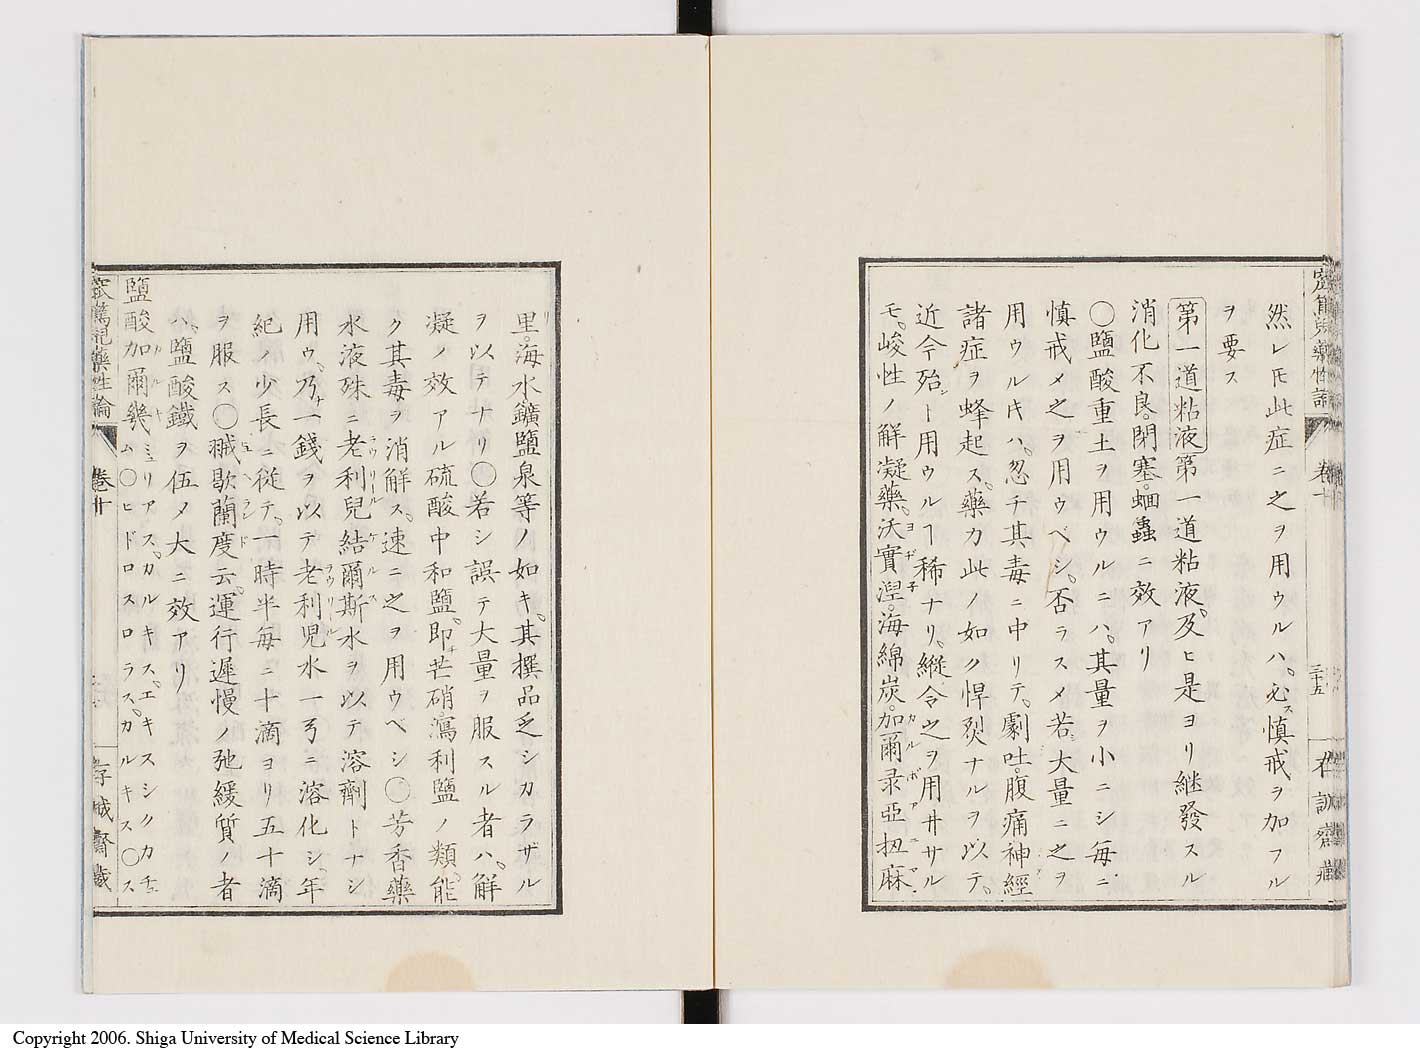 然レ𪜈此症ニ之ヲ用ウルハ。必ス慎戒ヲ加フル
ヲ要ス
第一道粘液 第一道粘液。及ヒ是ヨリ継發スル
消化不良。閉塞。蛔蟲ニ效アリ
〇鹽酸重土ヲ用ウルニハ。其量ヲ小ニシ毎ニ
慎戒メ之ヲ用ウベシ。否ラスメ若大量ニ之ヲ
用ウル𪜈ハ。忽チ其毒ニ中リテ。劇吐。腹痛神經
諸症ヲ蜂起ス。藥力此ノ如ク悍烈ナルヲ以テ。
近今殆ント用ウルヿ稀ナリ。縱令之ヲ用井サル
モ。峻性ノ解凝藥。沃實湼。海綿炭。加爾录亞扭麻
卷十
三十五
里。海水鑛鹽泉等ノ如キ。其撰品乏シカラザル
ヲ以テナリ〇若シ誤テ大量ヲ服スル者ハ。解
凝ノ效アル硫酸中和鹽。即芒硝瀉利鹽ノ類。能
ク其毒ヲ消解ス。速ニ之ヲ用ウベシ〇芳香藥
水液殊ニ老利兒結爾斯水ヲ以テ溶劑トナシ
用ウ。乃一錢ヲ以テ老利児水一弓ニ溶化シ。年
紀ノ少長ニ従テ。一時半毎ニ十滴ヨリ五十滴
ヲ服ス〇歇蘭度云。運行遲慢ノ弛緩質ノ者
ハ。鹽酸鐵ヲ伍メ大ニ效アリ
鹽酸加爾幾 ミュリアス。カルキス。エキスシクカチュ
ム〇ヒドロスロラス。カルキス〇ス
藥性論
卷十
存誠齋藏
Copyright 2006. Shiga University of Medical Science Library